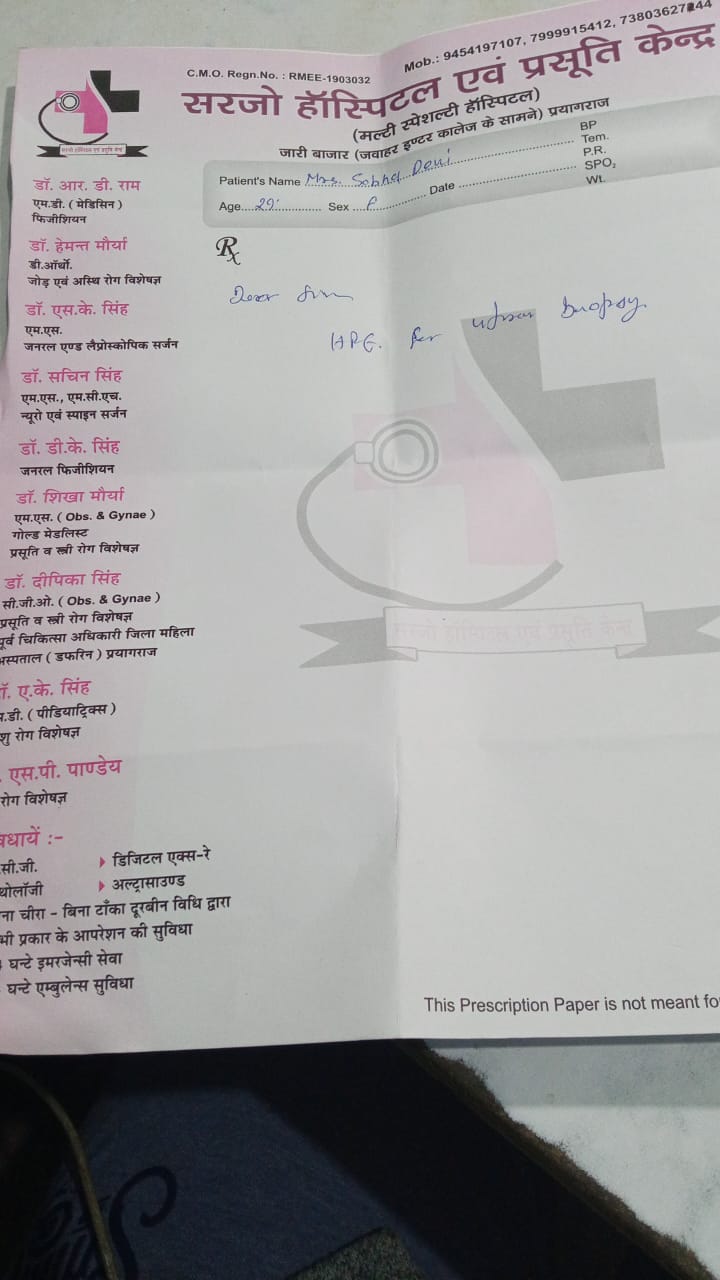 C.M.O. Regn.No. : RMEE-1903032
Mob.: 9454197107, 7999915412, 7380362744
सरजो हॉस्पिटल एवं प्रसूति केन्द्र
(मल्टी स्पेशल्टी हॉस्पिटल)
जारी बाजार (जवाहर इण्टर कालेज के सामने) प्रयागराज
सरजो हॉस्पिटल एवं प्रसूति केन्द्र
Patient's Name Mrs. Sobha Devi
Age....29.............. Sex ..F............. Date ..............................
BP
Tem.
P.R.
SPO₂
Wt.
Rx
Dear Sir
HPE. for uterus biopsy.
डॉ. आर. डी. राम
एम.डी. ( मेडिसिन )
फिजीशियन
डॉ. हेमन्त मौर्या
डी.ऑर्थो.
जोड़ एवं अस्थि रोग विशेषज्ञ
डॉ. एस.के. सिंह
एम.एस.
जनरल एण्ड लैप्रोस्कोपिक सर्जन
डॉ. सचिन सिंह
एम.एस., एम.सी.एच.
न्यूरो एवं स्पाइन सर्जन
डॉ. डी.के. सिंह
जनरल फिजीशियन
डॉ. शिखा मौर्या
एम.एस. ( Obs. & Gynae )
गोल्ड मेडलिस्ट
प्रसूति व स्त्री रोग विशेषज्ञ
डॉ. दीपिका सिंह
सी.जी.ओ. ( Obs. & Gynae )
प्रसूति व स्त्री रोग विशेषज्ञ
पूर्व चिकित्सा अधिकारी जिला महिला
अस्पताल ( डफरिन ) प्रयागराज
ॉ. ए.के. सिंह
.डी. ( पीडियाट्रिक्स )
शु रोग विशेषज्ञ
. एस.पी. पाण्डेय
रोग विशेषज्ञ
विधायें :-
सी.जी.
डिजिटल एक्स-रे
थोलॉजी
अल्ट्रासाउण्ड
ना चीरा - बिना टाँका दूरबीन विधि द्वारा
भी प्रकार के आपरेशन की सुविधा
घन्टे इमरजेन्सी सेवा
घन्टे एम्बुलेन्स सुविधा
सरजो हॉस्पिटल एवं प्रसूति केन्द्र
This Prescription Paper is not meant fo